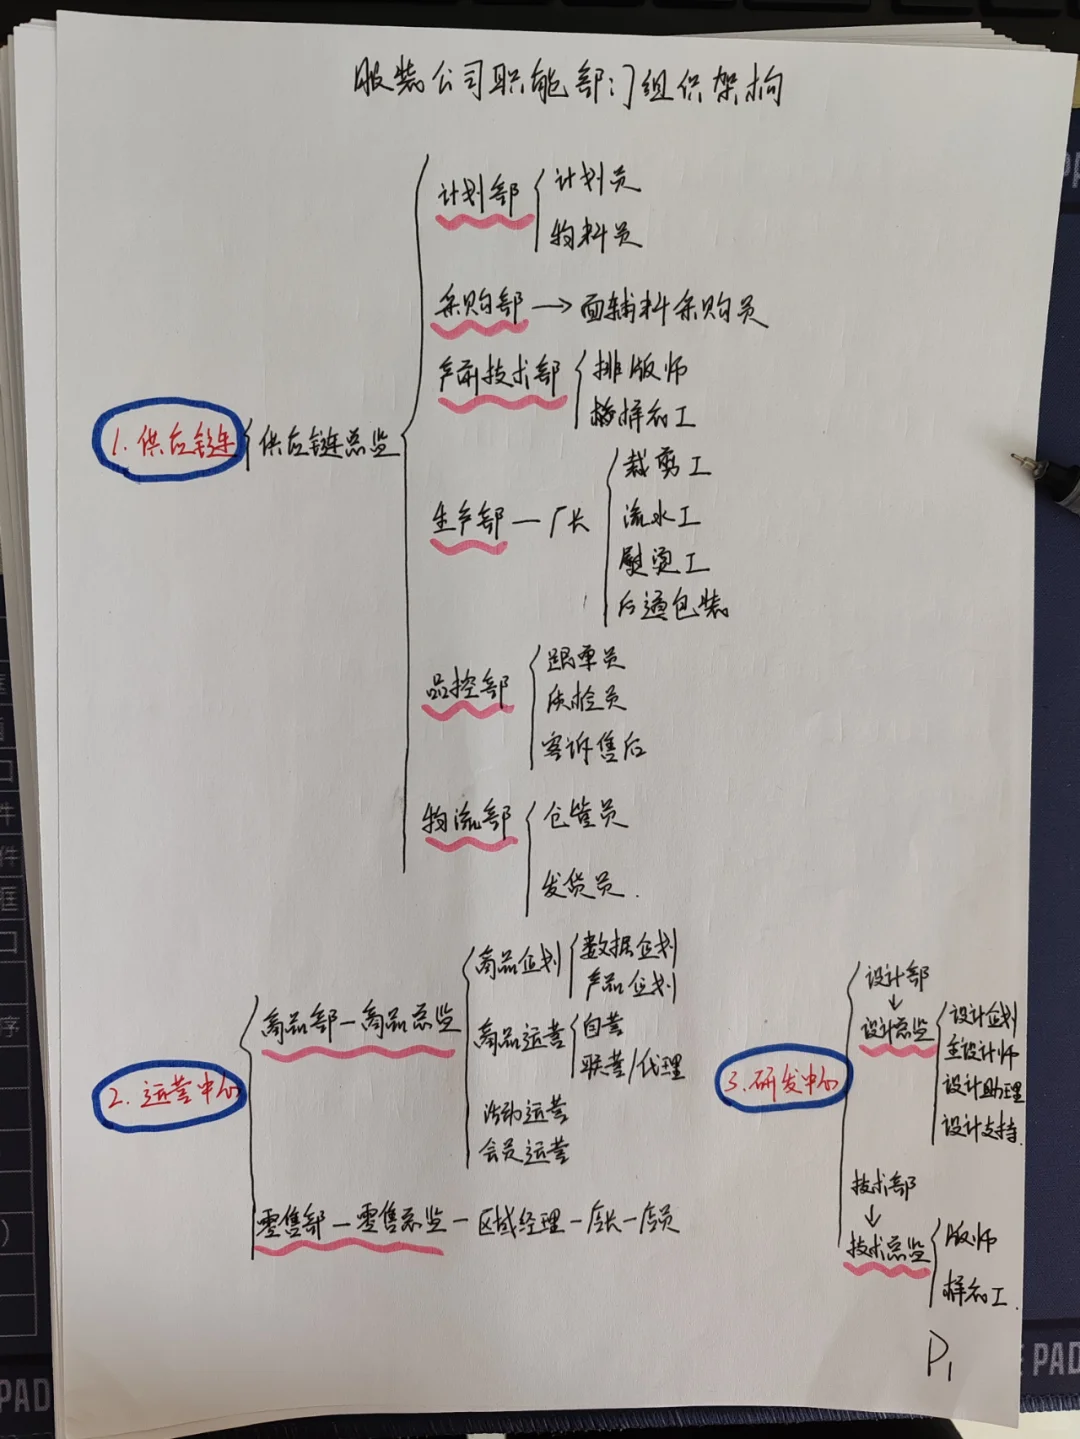 服装公司职能部门组织架构
1.供应链
供应链总监
计划部
计划员
物料员
采购部→面辅料采购员
产前技术部
排版师
样衣工
生产部—厂长
裁剪工
流水工
熨烫工
后道包装
品控部
跟单员
质检员
客诉售后
物流部
仓管员
发货员.
2.运营中心
商品部—商品总监
商品企划
数据企划
产品企划
商品运营
自营
联营/代理
活动运营
会员运营
零售部—零售总监—区域经理—店长—店员
3.研发中心
设计部
↓
设计总监
设计企划
主设计师
设计助理
设计支持.
技术部
↓
技术总监
版师
样衣工.
P1
PAD
PAD
件
件
框
口
序